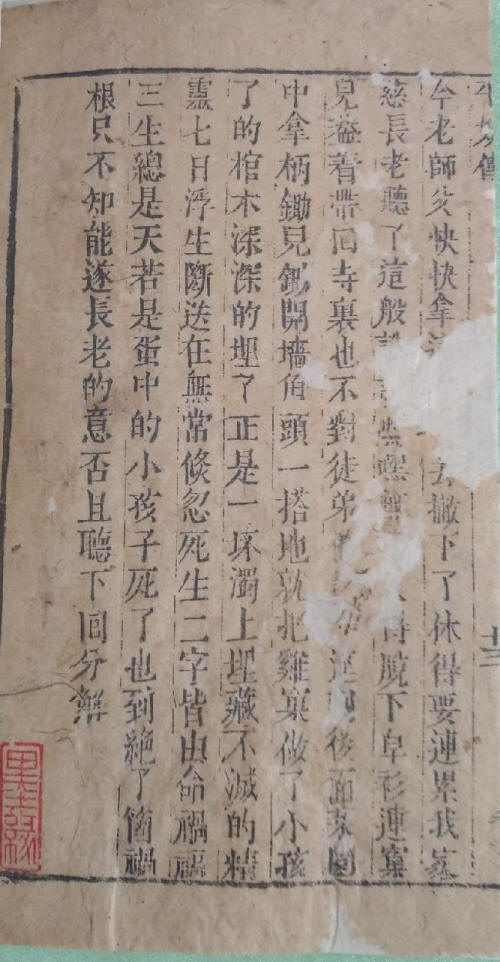 傳
老師父快快拿 去撇下了休得要連累我家
慈長老聽了這般 得脫下皁衫連窠
兒 着帶回寺裏也不對徒弟 後面菜園
中拿柄鋤兒鋤開墻角頭一搭地就把雞窠做了小孩
了的棺木深深的埋了正是一坏濁上埋藏不滅的精
靈七日浮生斷送在無常倏忽死生二字皆由命禍福
三生總是天若是蛋中的小孩子死了也到絕了箇禍
根只不知能遂長老的意否且聽下回分解